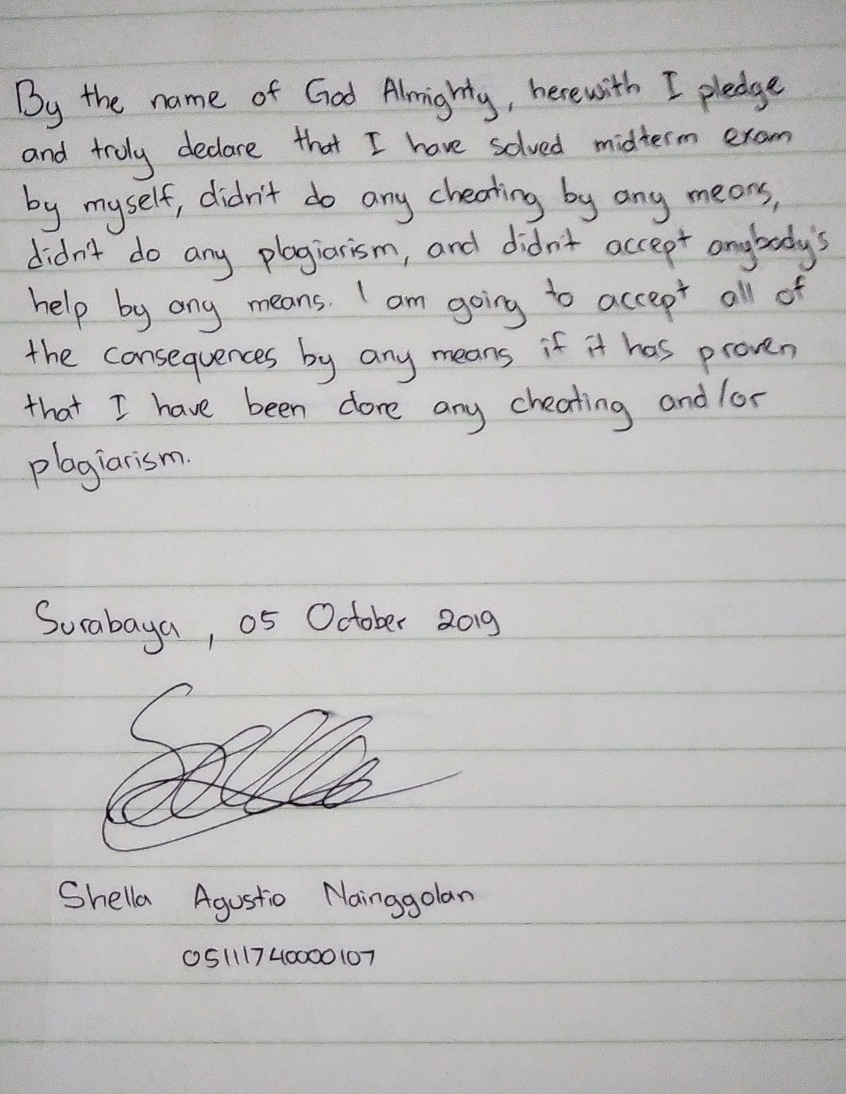 By the name of God Almighty, herewith I pledge
and truly declare that I have solved midterm exam
by myself, didn't do any cheating by any means,
didn't do any plagiarism, and didn't accept anybody's
help by any means. I am going to accept all of
the consequences by any means if it has proven
that I have been done any cheating and/or
plagiarism.
Surabaya, 05 October 2019
Shella Agustio Nainggolan
05111740000107